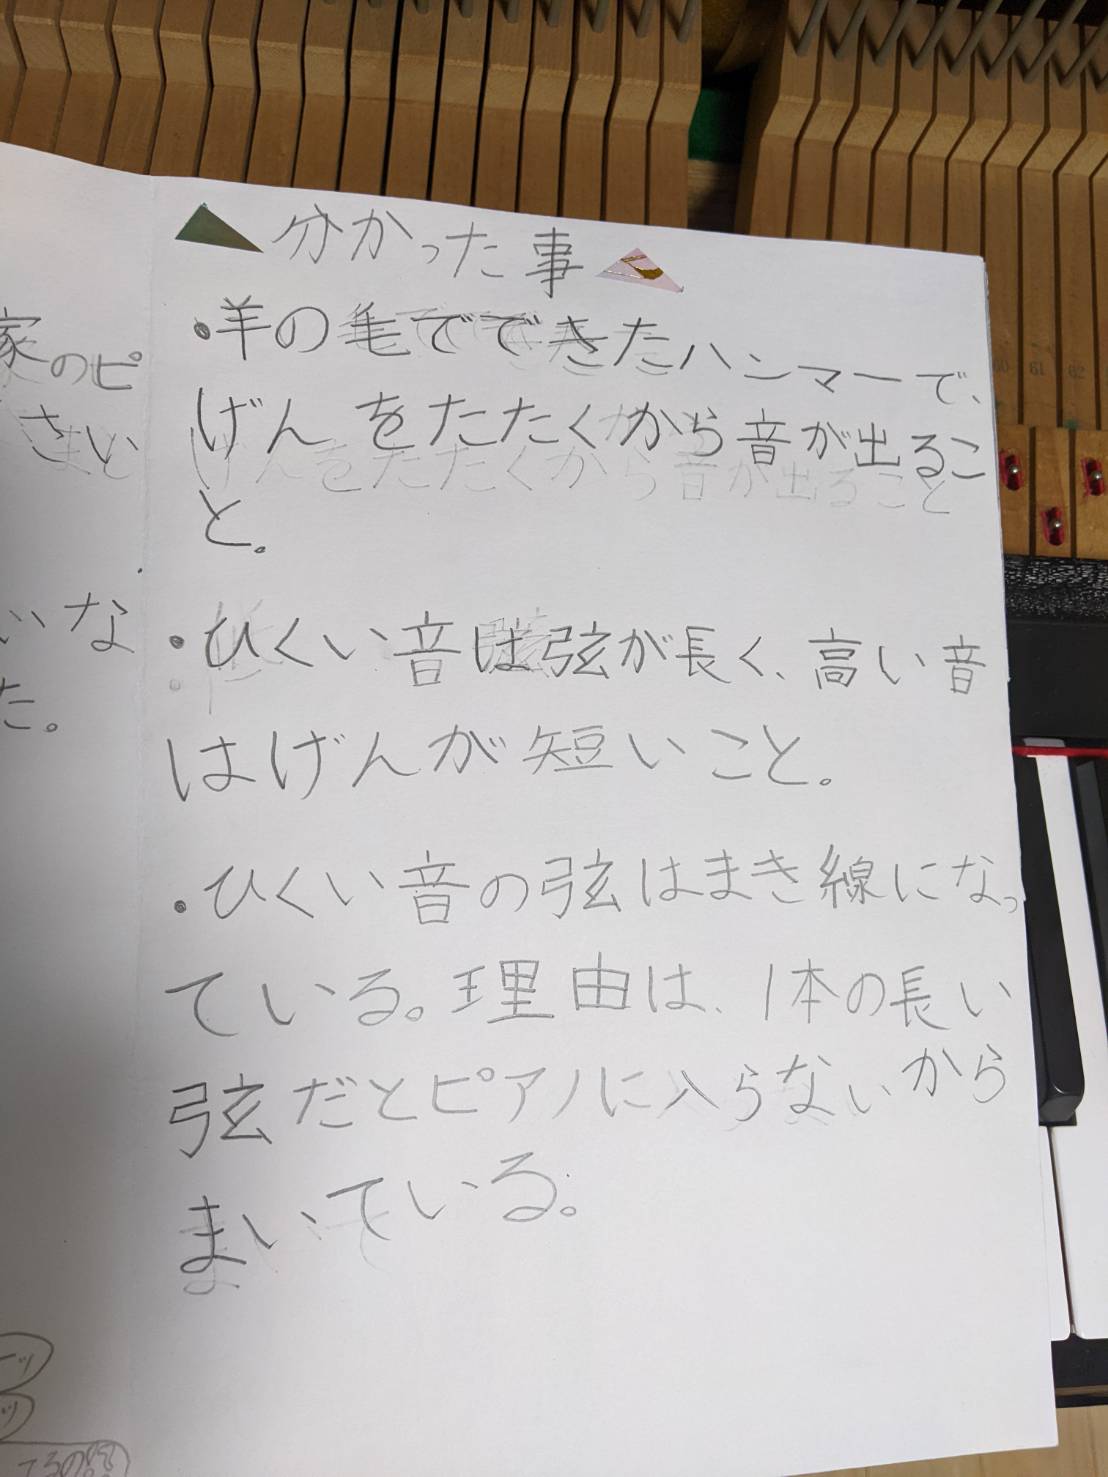 分かった事
・羊の毛でできたハンマーで、
げんをたたくから音が出るこ
と。
・ひくい音は弦が長く、高い音
はげんが短いこと。
・ひくい音の弦はまき線になっ
ている。理由は、1本の長い
弦だとピアノに入らないから
まいている。
家のピ
さい
いな
た。
61
62